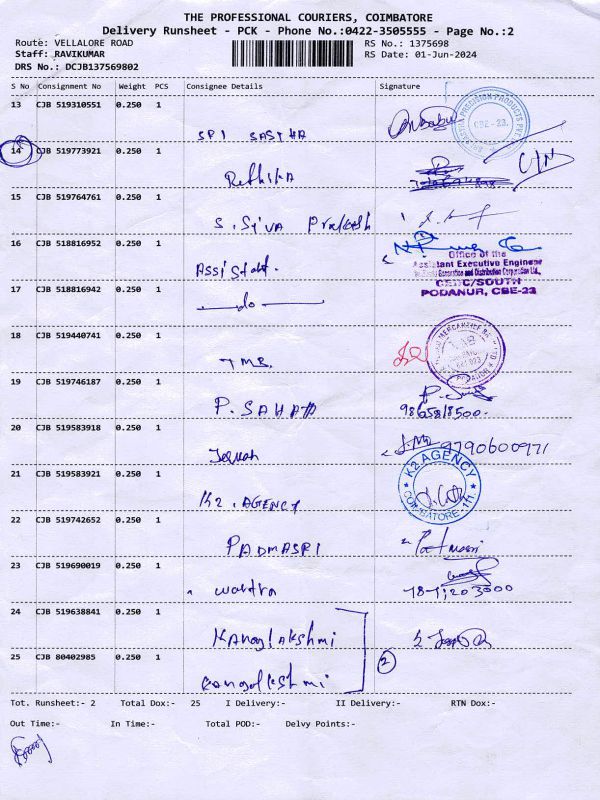 THE PROFESSIONAL COURIERS, COIMBATORE
Delivery Runsheet - PCK - Phone No.:0422-3505555 - Page No.:2
Route: VELLALORE ROAD RS No.: 1375698
Staff: RAVIKUMAR RS Date: 01-Jun-2024
DRS No.: DCJB137569802
S No Consignment No Weight PCS Consignee Details Signature
13 CJB 519310551 0.250 1
SRI SASTHA
CBE-23.
14 CJB 519773921 0.250 1
Rethika
15 CJB 519764761 0.250 1
S. Siva Prakash
16 CJB 518816952 0.250 1
Assistant.
Office of the
Assistant Executive Engineer
Generation and Distribution Corporation Ltd.,
CEDC/SOUTH
PODANUR, CBE-23
17 CJB 518816942 0.250 1
do
18 CJB 519440741 0.250 1
TMB.
19 CJB 519746187 0.250 1
P. SAHA
9865818500.
20 CJB 519583918 0.250 1
9790600971
21 CJB 519583921 0.250 1
K2. AGENCY
K2 AGENCY
COIMBATORE-111
22 CJB 519742652 0.250 1
PADMASRI
23 CJB 519690019 0.250 1
24 CJB 519638841 0.250 1
Kanaglakshmi
25 CJB 80402985 0.250 1
2
Tot. Runsheet:- 2 Total Dox:- 25 I Delivery:- II Delivery:- RTN Dox:-
Out Time:- In Time:- Total POD:- Delvy Points:-